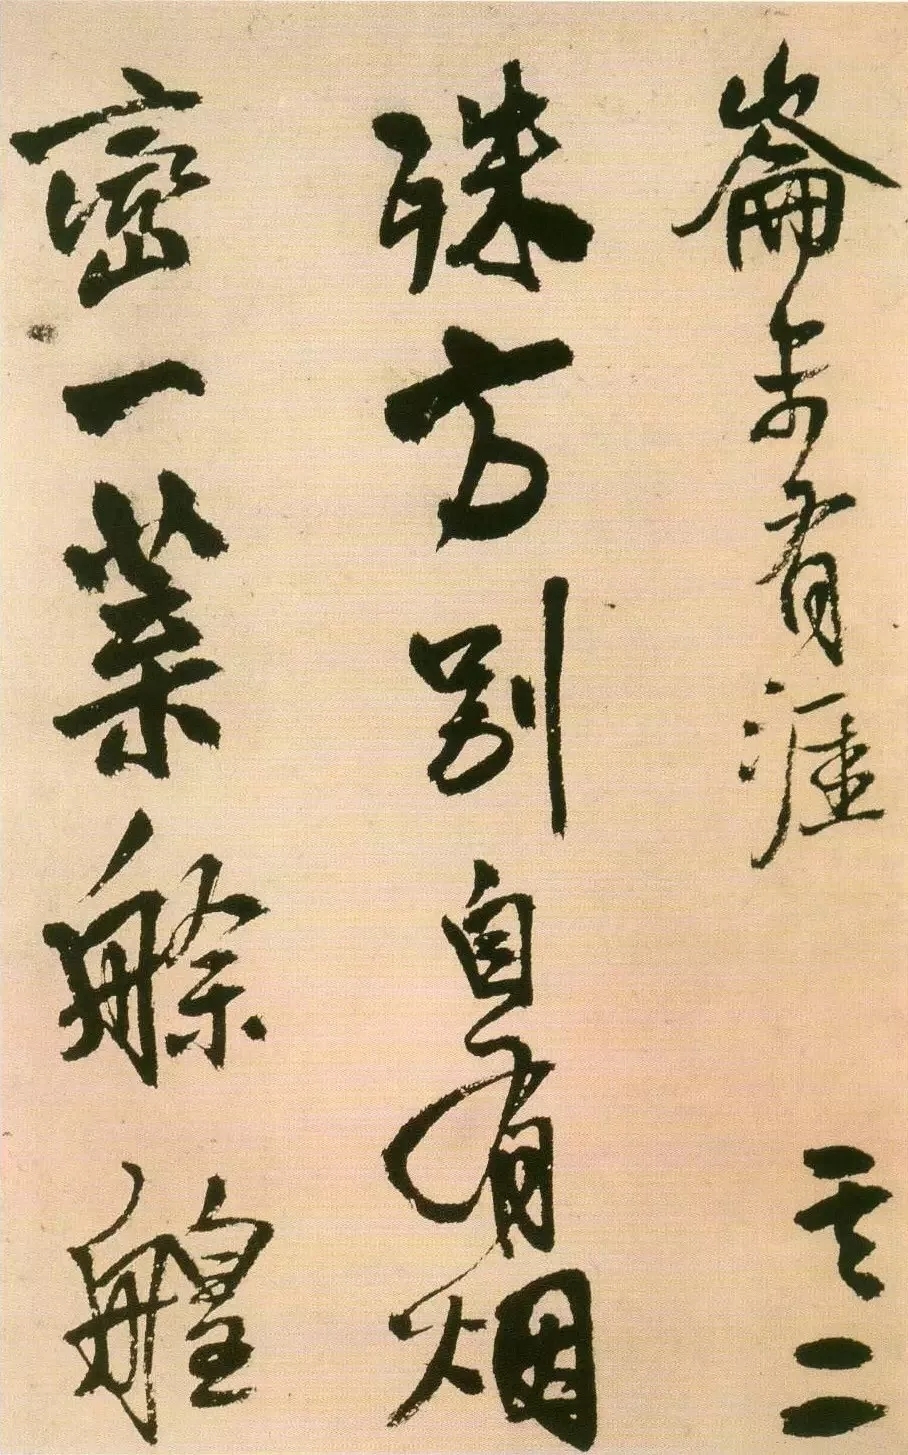 崙亦有涯 其二
殊方別自有烟
巒一葉艅艎